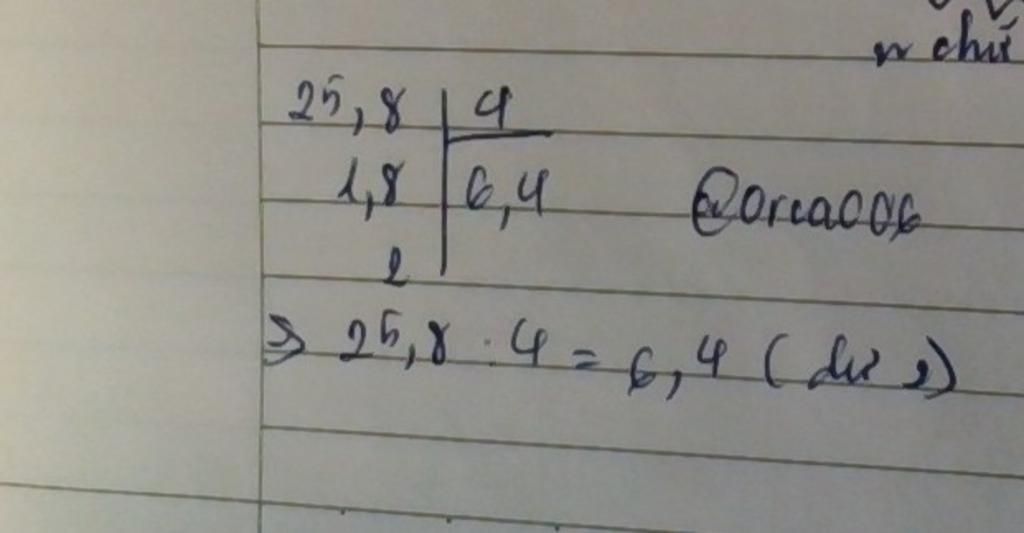 n chú
25,8 | 4
1,8 | 6,4
@Orca006
2
⇒ 25,8 : 4 = 6,4 (dư 2)